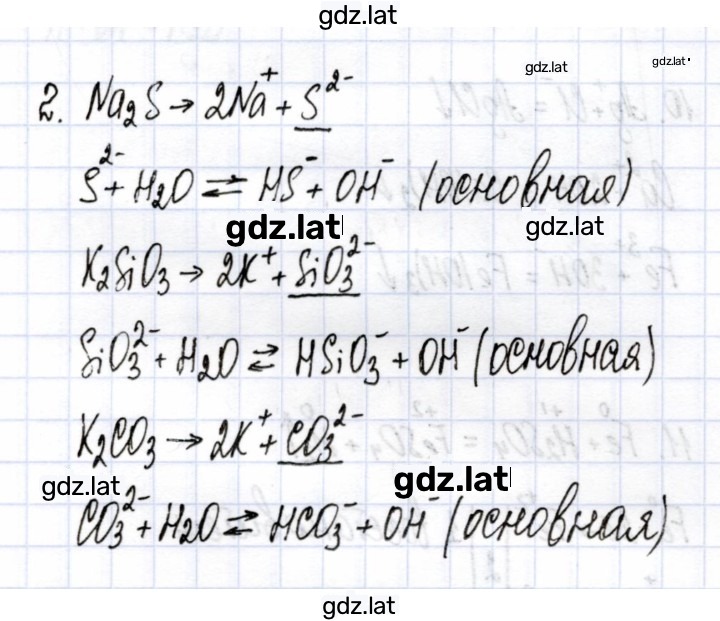 gdz.lat
gdz.lat gdz.lat
2. Na₂S → 2Na⁺ + S²⁻
S²⁻ + H₂O ⇄ HS⁻ + OH⁻ (основная)
gdz.lat gdz.lat
K₂SiO₃ → 2K⁺ + SiO₃²⁻
SiO₃²⁻ + H₂O ⇄ HSiO₃⁻ + OH⁻ (основная)
K₂CO₃ → 2K⁺ + CO₃²⁻
gdz.lat gdz.lat
CO₃²⁻ + H₂O ⇄ HCO₃⁻ + OH⁻ (основная)
gdz.lat